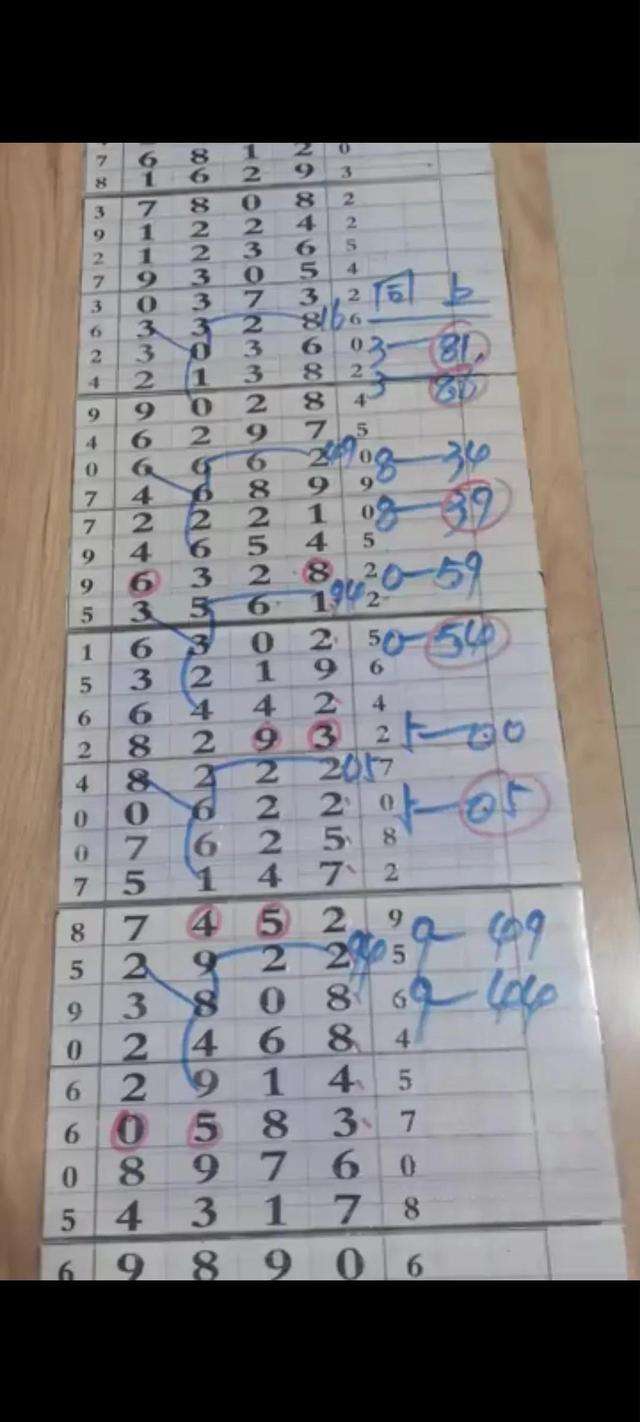 7 6 8 1 2 0
8 1 6 2 9 3
3 7 8 0 8 2
9 1 2 2 4 2
2 1 2 3 6 5
7 9 3 0 5 4
3 0 3 7 3 2
6 3 3 2 8 16 6
2 3 0 3 6 0 3-81
4 2 1 3 8 2 3-86
9 9 0 2 8 4
4 6 2 9 7 5
0 6 6 6 2 49 0 8-34
7 4 6 8 9 9
7 2 2 2 1 0 8-39
9 4 6 5 4 5
9 6 3 2 8 2 0-59
5 3 5 6 1 94 2
1 6 3 0 2 5 0-54
5 3 2 1 9 6
6 6 4 4 2 4
2 8 2 9 3 2 5-00
4 8 2 2 2 05 7
0 0 6 2 2 0 5-05
0 7 6 2 5 8
7 5 1 4 7 2
8 7 4 5 2 9 9-49
5 2 9 2 2 94 5
9 3 8 0 8 6 9-44
0 2 4 6 8 4
6 2 9 1 4 5
6 0 5 8 3 7
0 8 9 7 6 0
5 4 3 1 7 8
6 9 8 9 0 6